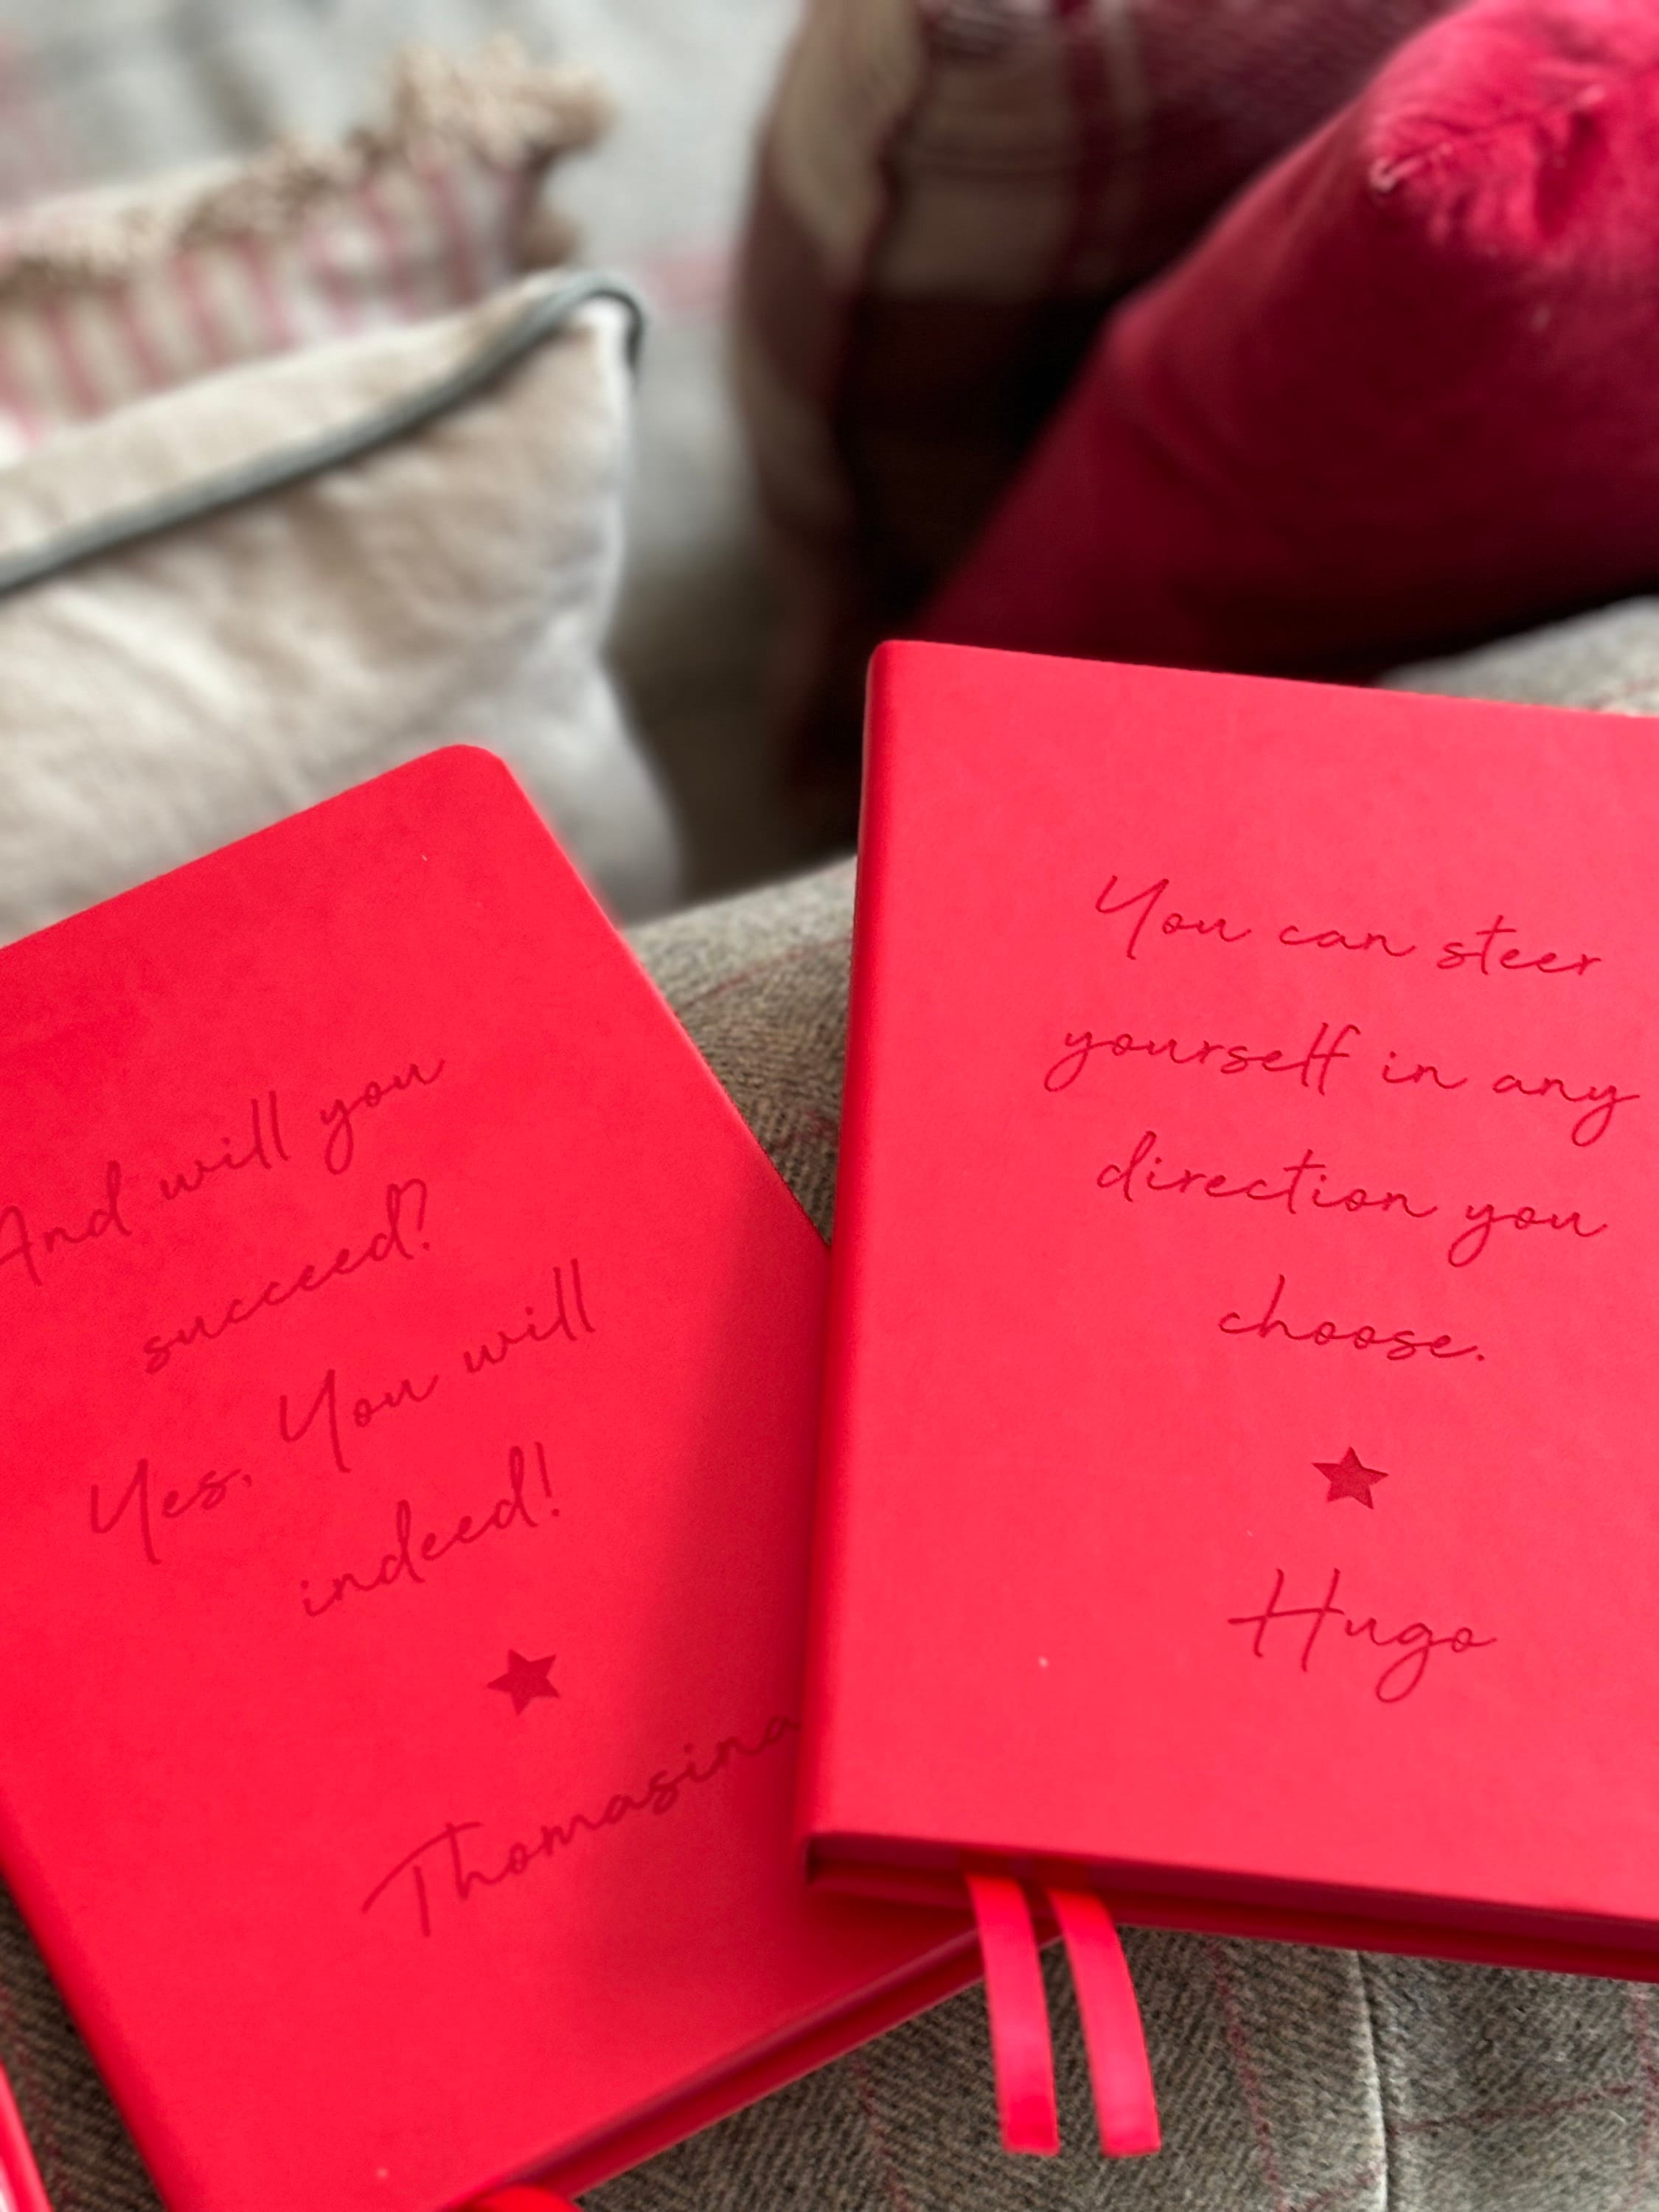 And will you
succeed?
Yes, You will
indeed!
Thomasina
You can steer
yourself in any
direction you
choose.
Hugo